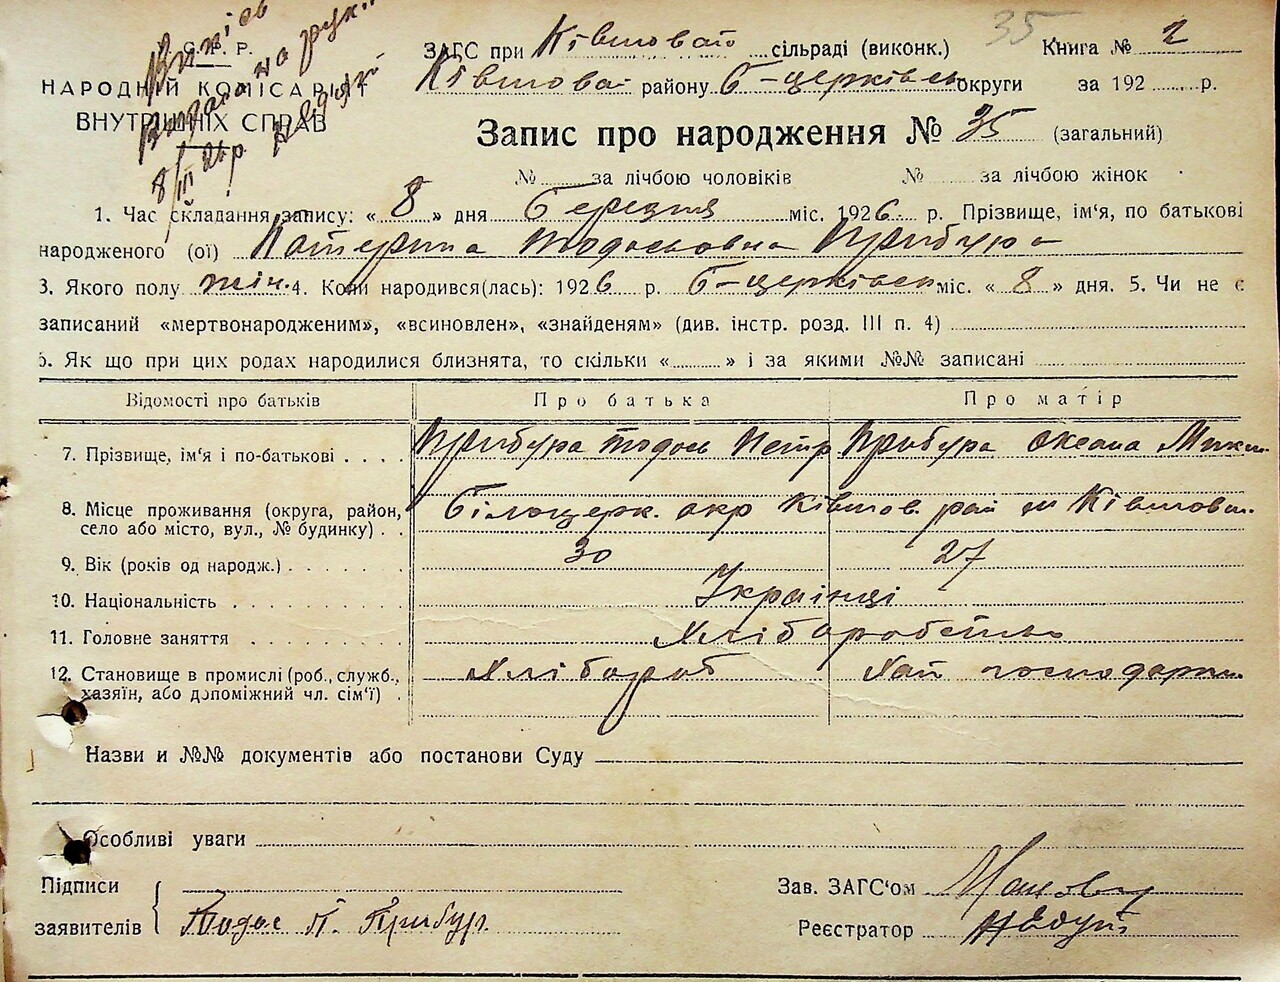 У. С. Р. Р.
НАРОДНІЙ КОМІСАРІЯТ
ВНУТРІШНІХ СПРАВ
Випись
видано на руки
8/III 26 р.
35
ЗАГС при Ківшоват сільраді (виконк.) Книга № 2
Ківшова району Б-церківськ округи за 192 р.
Запис про народження № 35 (загальний)
№ за лічбою чоловіків № за лічбою жінок
1. Час складання запису: « 8 » дня Березня міс. 1926 р. Прізвище, ім'я, по батькові
народженого (ої) Катерина Тодосьовна Прибура
3. Якого полу жін. 4. Коли народився(лась): 1926 р. Б-церківськ міс. « 8 » дня. 5. Чи не є
записаний «мертвонародженим», «всиновлен», «знайденям» (див. інстр. розд. III п. 4)
6. Як що при цих родах народилися близнята, то скільки « » і за якими №№ записані
Відомості про батьків Про батька Про матір
7. Прізвище, ім'я і по-батькові Прибура Тодось Петр Прибура Оксана Мик
8. Місце проживання (округа, район, село або місто, вул., № будинку) Білоцерк. окр Ківшов. рай м Ківшоват
9. Вік (років од народж.) 30 27
10. Національність Українці
11. Головне заняття Хліборобство
12. Становище в промислі (роб., служб., хазяїн, або допоміжний чл. сім'ї) Хлібороб господарка
Назви и №№ документів або постанови Суду
Особливі уваги
Підписи
заявителів Тодос П. Прибур.
Зав. ЗАГС'ом
Реєстратор